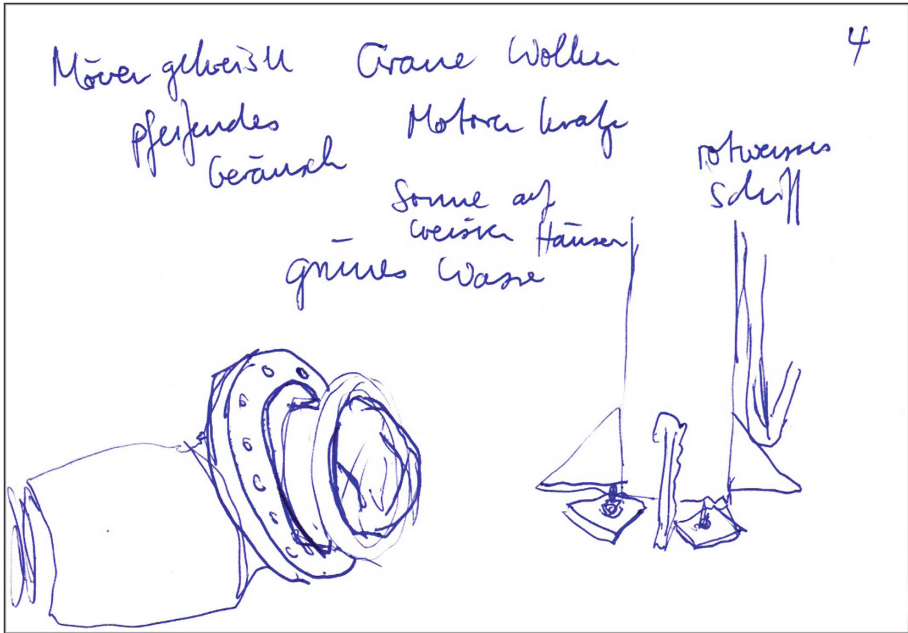 Möven gekreisch
Graue Wolken
4
pfeifendes
Geräusch
Motoren kraft
rotweisses
Schiff
Sonne auf
weissen Häuser
grünes Wasser